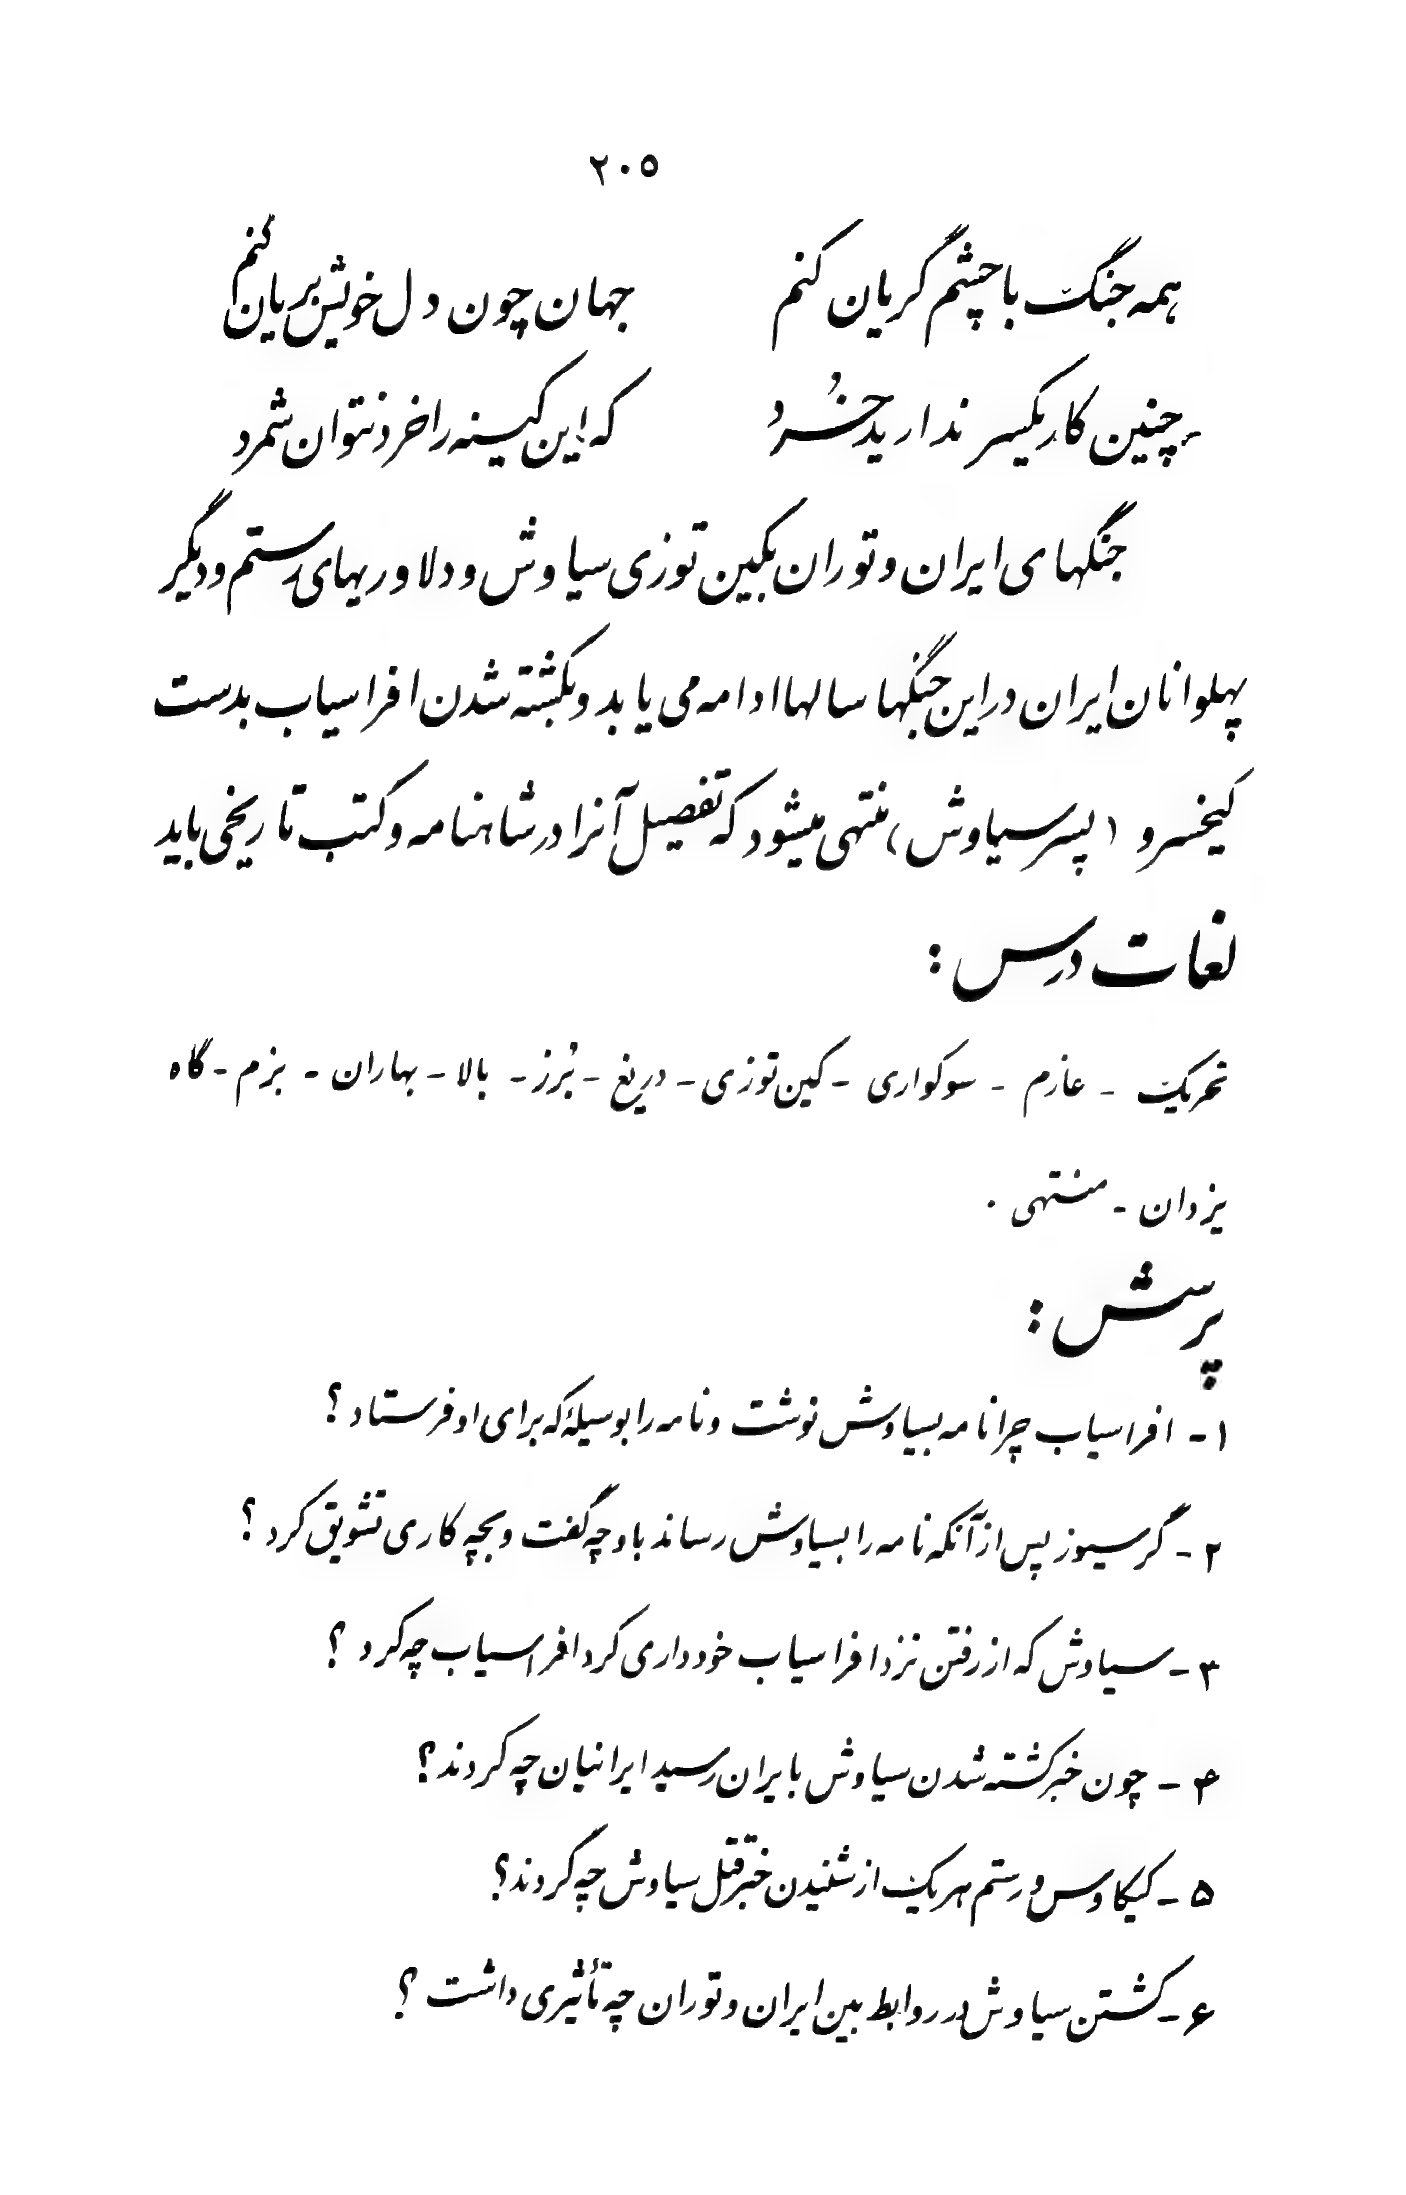 ۲۰۵
همه جنگ با چشم گریان کنم جهان چون دل خویش بریان کنم
چنین کار یکسر ندارید خُرد که این کینه را خرد نتوان شمرد
جنگهای ایران و توران بکین توزی سیاوش و دلاوریهای رستم و دیگر
پهلوانان ایران در این جنگها سالها ادامه می یابد و بکشته شدن افراسیاب بدست
کیخسرو (پسر سیاوش) منتهی میشود که تفصیل آنرا در شاهنامه و کتب تاریخی باید
لغات درس :
تحریک - عازم - سوکواری - کین توزی - دریغ - بُرز - بالا - بهاران - بزم - گاه
یزدان - منتهی .
پرسش :
۱- افراسیاب چرا نامه بسیاوش نوشت و نامه را بوسیلهٔ که برای او فرستاد ؟
۲- گرسیوز پس از آنکه نامه را بسیاوش رساند باو چه گفت و بچه کاری تشویق کرد ؟
۳- سیاوش که از رفتن نزد افراسیاب خودداری کرد افراسیاب چه کرد ؟
۴- چون خبر کشته شدن سیاوش بایران رسید ایرانیان چه کردند ؟
۵- کیکاوس و رستم هریک از شنیدن خبر قتل سیاوش چه کردند ؟
۶- کشتن سیاوش در روابط بین ایران و توران چه تأثیری داشت ؟